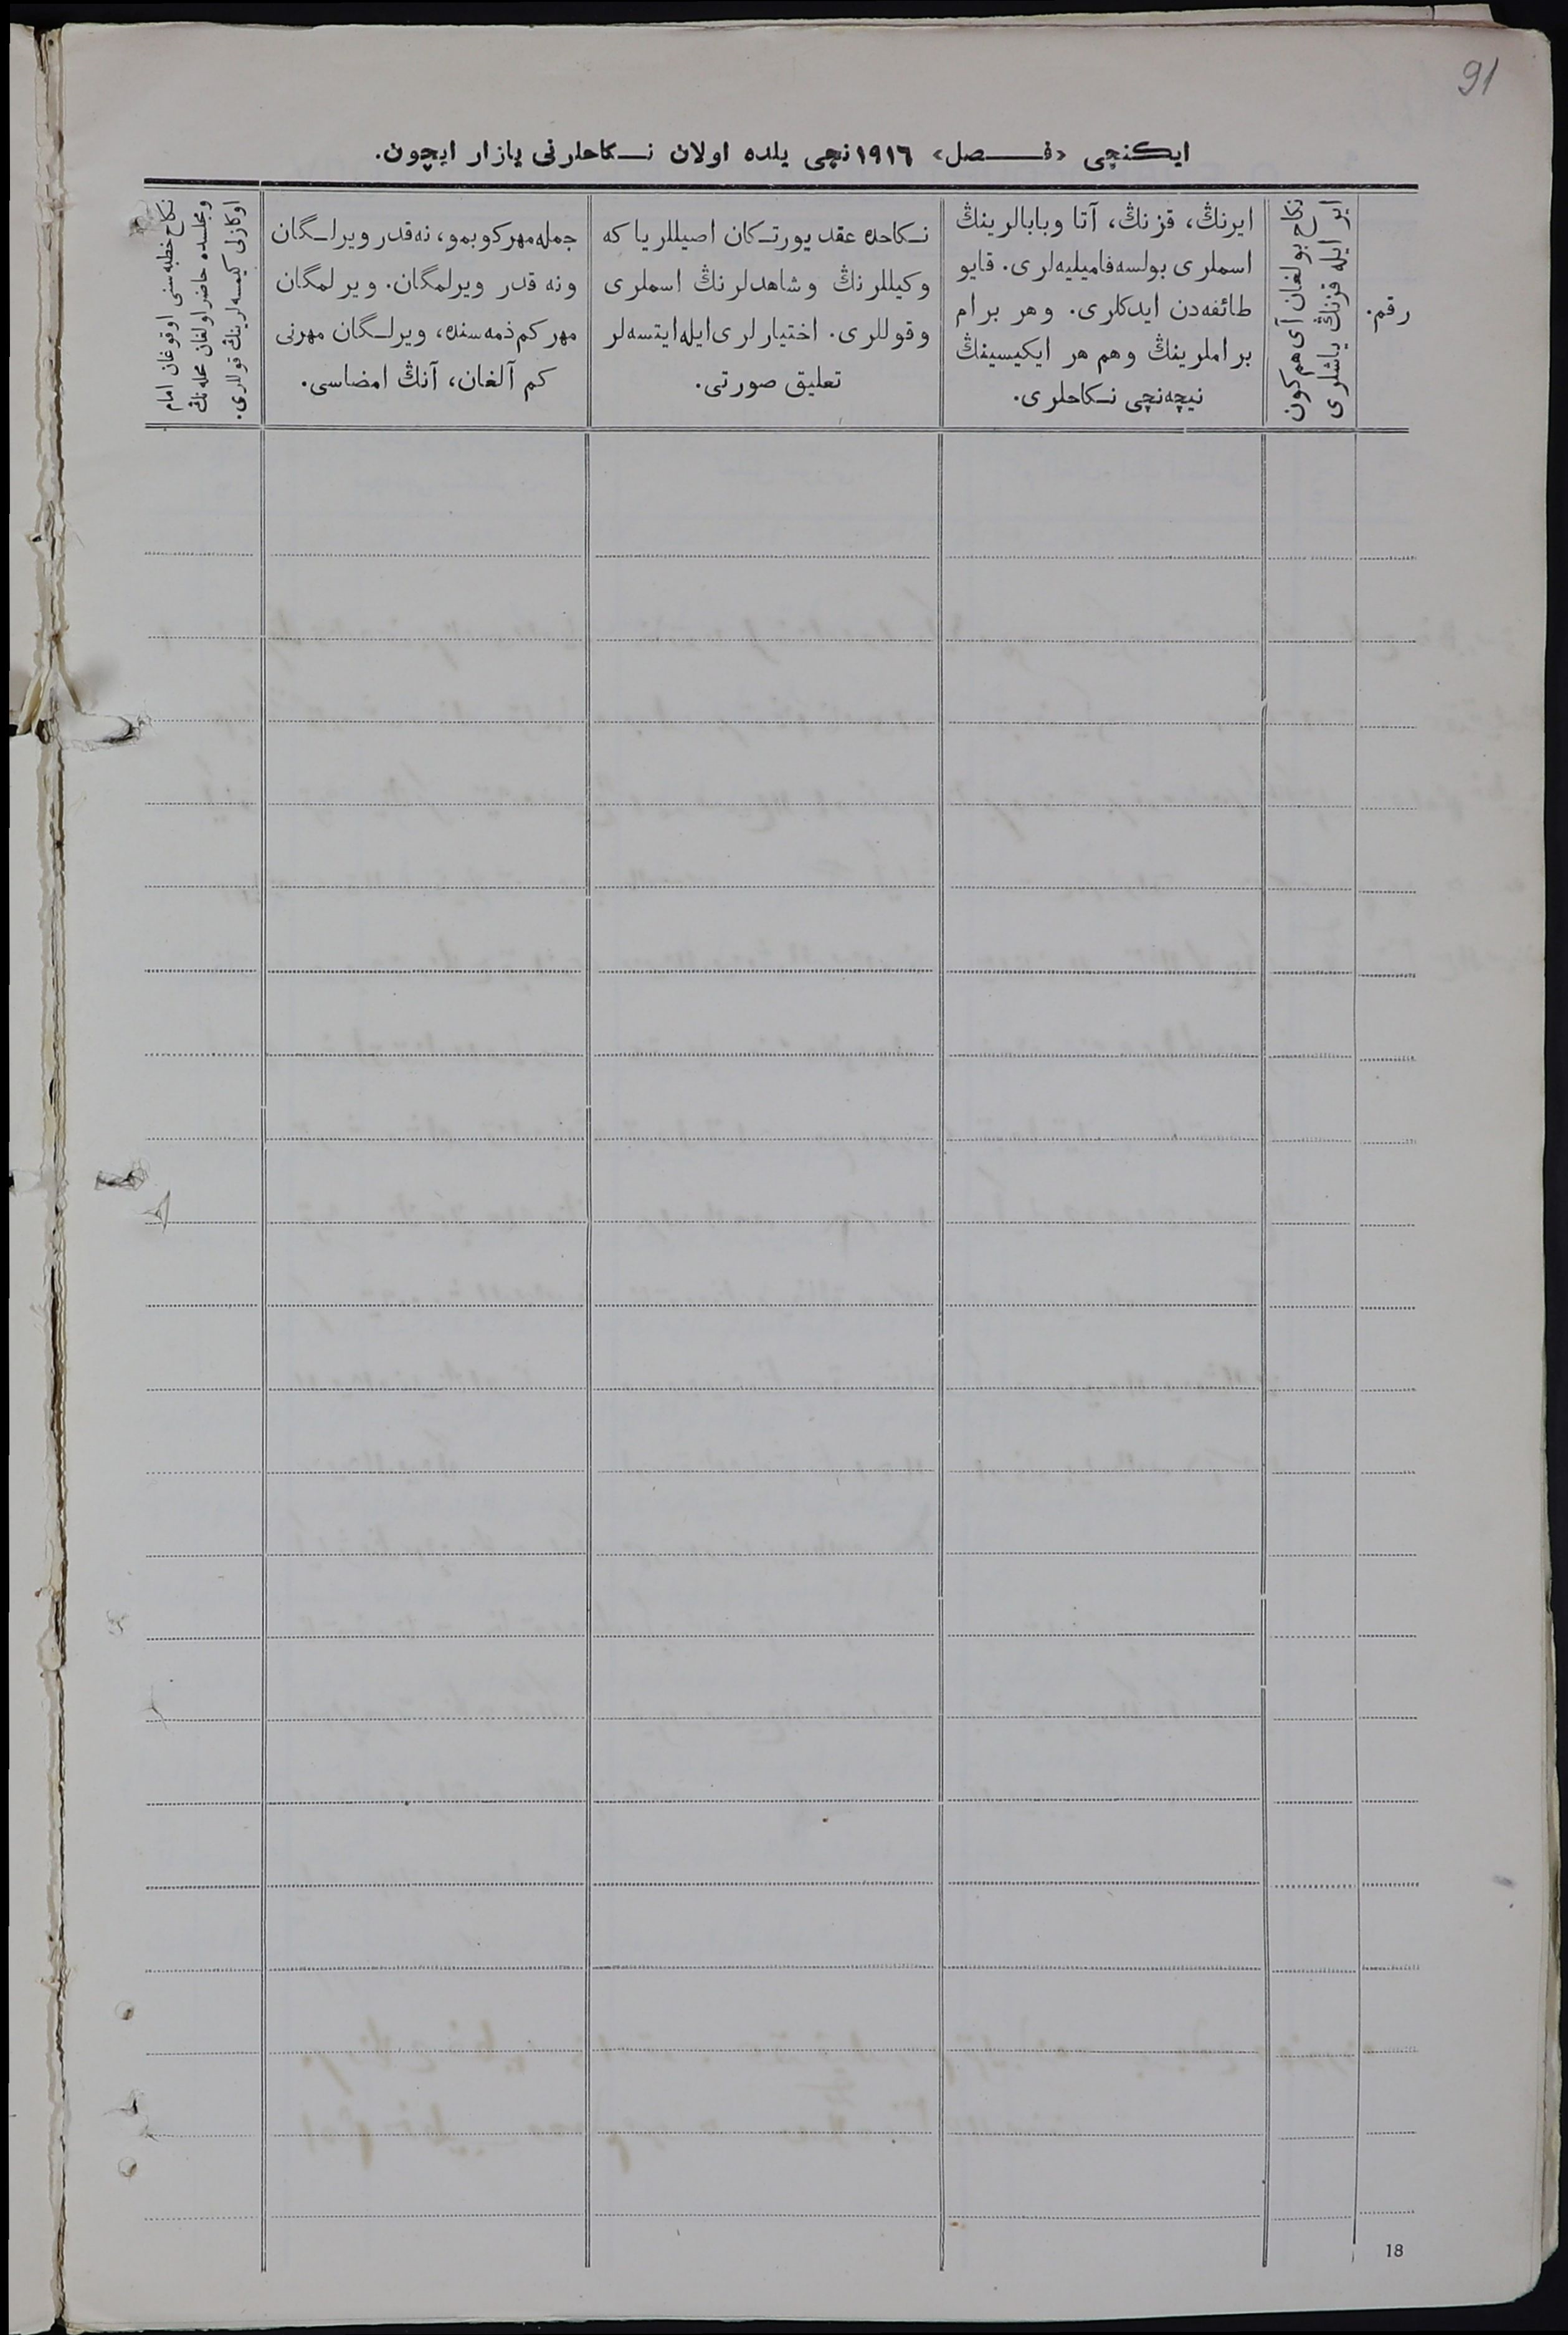 91
ایكنچی «فـصل» ١٩١٦نچی یلده اولان نـكاحلرنی یازار ایچون.
رقم.
نكاح بولغان آی هم كون
ایر ایله قزنڭ یاشلری
ایرنڭ، قزنڭ، آتا وبابالرینڭ
اسملری بولسه‌فامیلیه‌لری. قایو
طائفه‌دن ایدكلری. وهر برام
براملرینڭ وهم هر ایكیسینڭ
نیچه‌نچی نـكاحلری.
نـكاحده عقد یورتـكان اصیللر یا كه
وكیللرنڭ وشاهدلرنڭ اسملری
وقوللری. اختیارلری‌ایله‌ایتسه‌لر
تعلیق صورتی.
جمله‌مهركوبمو، نه‌قدر ویرلـگان
ونه قدر ویرلمگان. ویرلمگان
مهر كم‌ذمه‌سنده، ویرلـگان مهرنی
كم آلغان، آنڭ امضاسی.
نكاح خطبه‌سنی اوقوغان امام
ومجلسده حاضر اولغان محله‌نڭ
اوكازلی كیمسه‌لرینڭ قوللری.
18